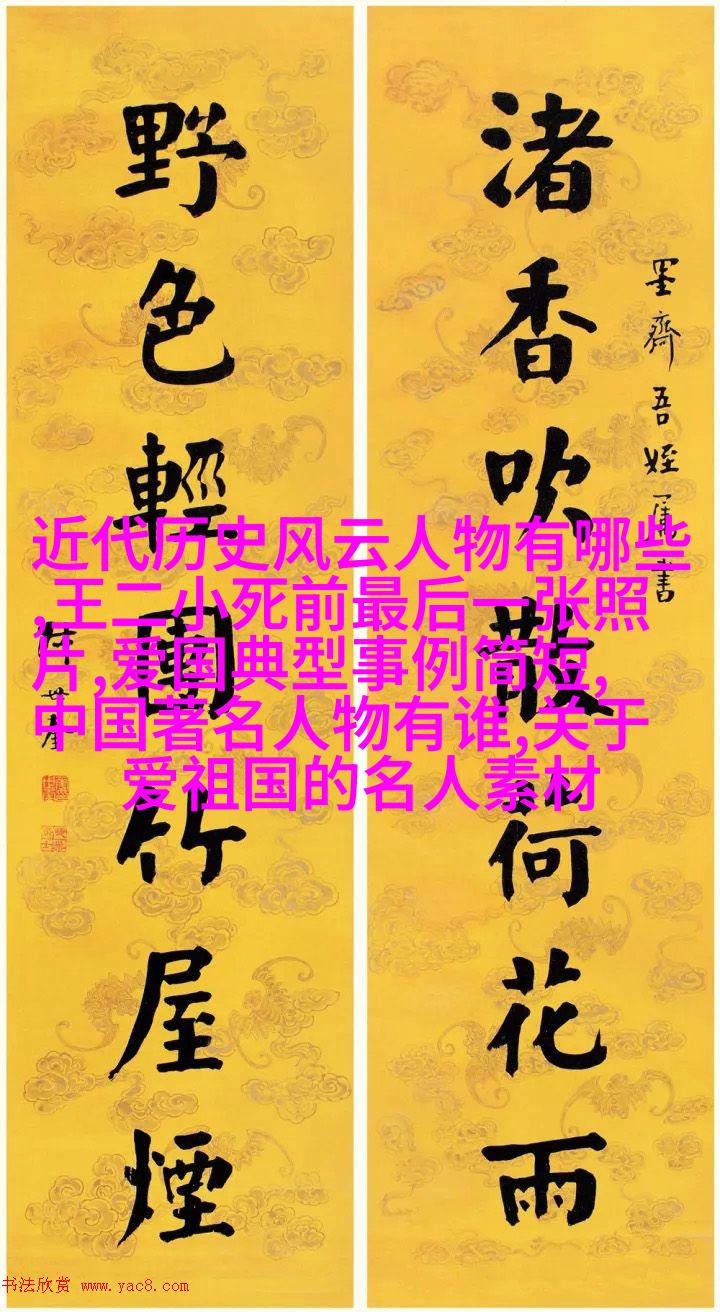 墨齋吾姪屬書
渚香吹散荷花雨
野色輕團竹屋煙
近代历史风云人物有哪些
,王二小死前最后一张照
片,爱国典型事例简短,
中国著名人物有谁,关于
爱祖国的名人素材
书法欣赏 www.yac8.com